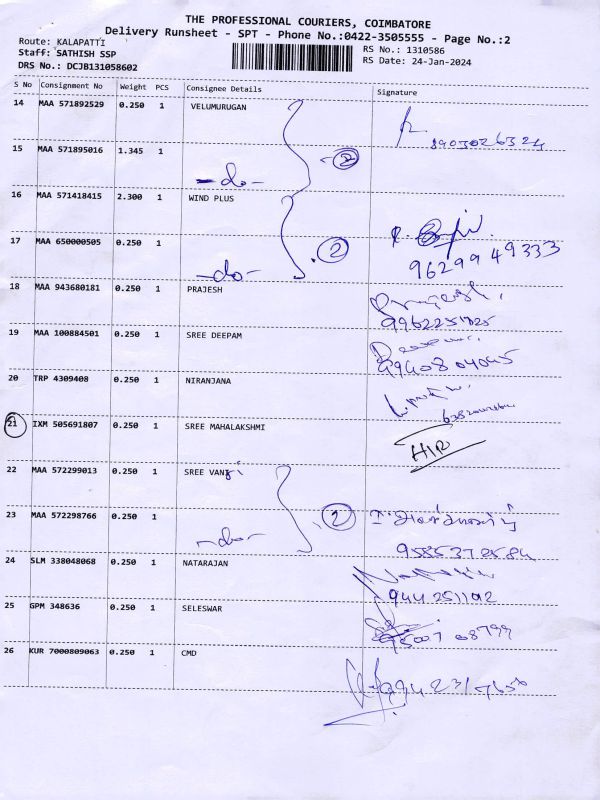 THE PROFESSIONAL COURIERS, COIMBATORE
Delivery Runsheet - SPT - Phone No.:0422-3505555 - Page No.:2
Route: KALAPATTI
Staff: SATHISH SSP
DRS No.: DCJB131058602
RS No.: 1310586
RS Date: 24-Jan-2024
S No Consignment No Weight PCS Consignee Details Signature
14 MAA 571892529 0.250 1 VELUMURUGAN
8903026324
15 MAA 571895016 1.345 1 -do- 2
16 MAA 571418415 2.300 1 WIND PLUS
17 MAA 650000505 0.250 1 -do- 2 9629949333
18 MAA 943680181 0.250 1 PRAJESH
9962251725
19 MAA 100884501 0.250 1 SREE DEEPAM
9940804045
20 TRP 4309408 0.250 1 NIRANJANA
21 IXM 505691807 0.250 1 SREE MAHALAKSHMI
22 MAA 572299013 0.250 1 SREE VANJI
23 MAA 572298766 0.250 1 -do- 2
9585372584
24 SLM 338048068 0.250 1 NATARAJAN
9442511192
25 GPM 348636 0.250 1 SELESWAR
95007 08799
26 KUR 7000809063 0.250 1 CMD